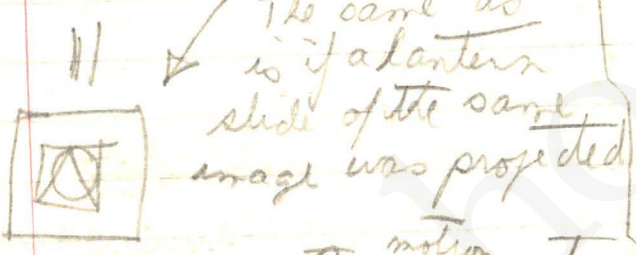 The same as
is if a lantern
slide of the same
image was projected
motion